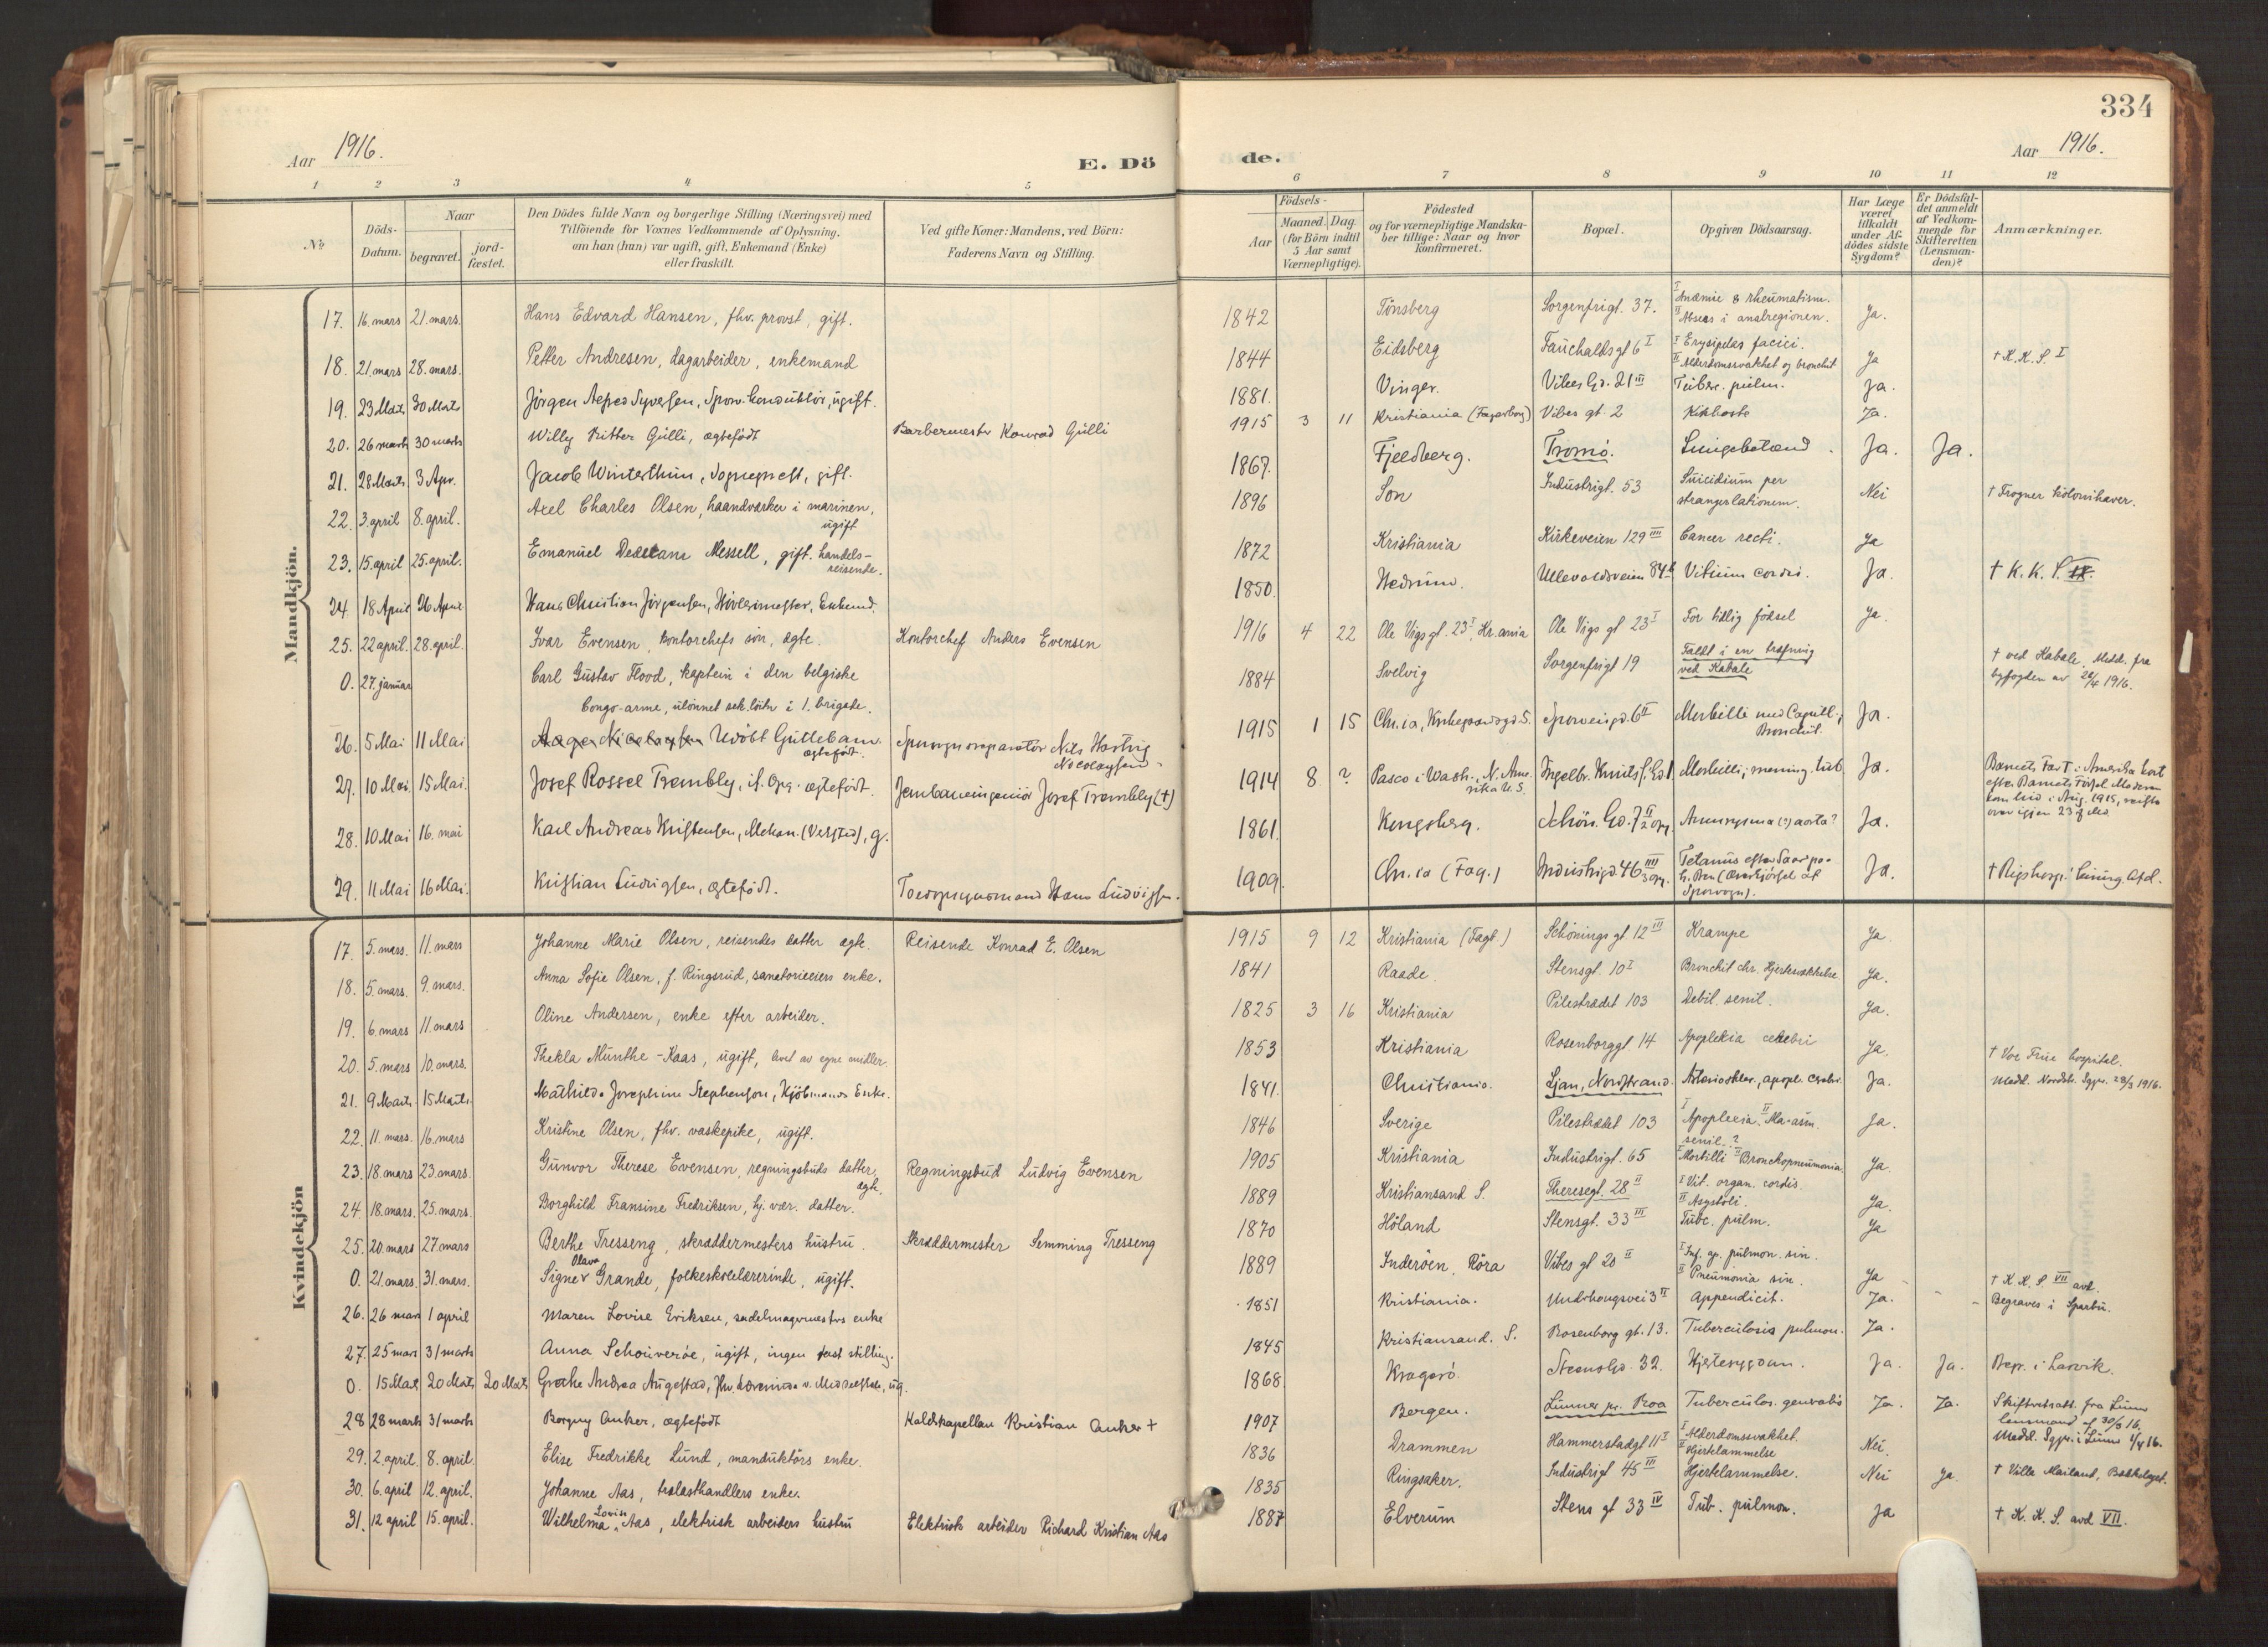 334
Aar 1916.
E. Dö
de.
Aar 1916.
1 2 3 4 5
6 7 8 9 10 11 12
No
Döds-Datum.
Naar
begravet.
jord-fæstet.
Den Dödes fulde Navn og borgerlige Stilling (Næringsvei) med
Tilföiende for Voxnes Vedkommende af Oplysning,
om han (hun) var ugift, gift, Enkemand (Enke)
eller fraskilt.
Ved gifte Koner: Mandens, ved Börn:
Faderens Navn og Stilling.
Födsels-
Aar
Maaned.
Dag.
(for Börn indtil
5 Aar samt
Værnepligtige).
Födested
og for værnepligtige Mandska-
ber tillige: Naar og hvor
konfirmeret.
Bopæl.
Opgiven Dödsaarsag.
Har Læge
været
tilkaldt
under Af-
dödes sidste
Sygdom?
Er Dödsfal-
det anmeldt
af Vedkom-
mende for
Skifteretten
(Lensman-
den)?
Anmærkninger.
Mandkjön.
17. 16. mars 21. mars. Hans Edvard Hansen, fhv. provst, gift. 1842 Tönsberg Sorgenfrigt. 37. I Anæmie & rheumatism. II Absces i analregionen. Ja.
18. 21. mars 28. mars. Petter Andresen, dagarbeider, enkemand 1844 Eidsberg Fauchaldsgt 6 I I Erysipelas faciei. II Alderdomssvakhet og bronchit Ja † K. K. S. I
19. 23 Mars 30 Marts Jörgen Syversen, Sporv. konduktör, ugift. 1881. Vinger. Vibes Gd. 21 III Tuberc. pulm. Ja.
20. 26 marts 30 marts Willy Ritter Gulli, ægtefödt Barbermester Konrad Gulli 1915 3 11 Kristiania (Fagerborg) Vibes gt. 2 Kikhoste Ja.
21. 28 Marts 3 Apr. Jacob Winterthun, Sogneprest, gift. 1867. Fjeldberg. Tromö. Lungebetænd. Ja. Ja.
22. 3. april 8. april. Axel Charles Olsen, haandværker i marinen, ugift 1896 Son Industrigt. 53 Suicidium per strangulationem. Nei † Frogner kolonihaver.
23. 15. april 25. april. Emanuel Messell, gift. handels-reisende. 1872 Kristiania Kirkeveien 129 IIII Cancer recti. Ja
24 18 April 26 April Hans Christian Jörgensen, Enkemd. 1850. Hedrum. Ullevoldsveien 84 b Vitium cordis. Ja. † K. K. S. IX.
25. 22 april. 28. april. Ivar Evensen, kontorchefs sön, ægte. Kontorchef Anders Evensen 1916 4 22 Ole Vigs gt. 23 I, Kr.ania Ole Vigs gt 23 I For tidlig födsel Ja.
0. 27. januar Carl Gustav Flood, kaptein i den belgiske
Congo-arme, ulönnet sek.löitn i 1. brigade. 1884 Svelvig Sorgenfrigt 19 Faldt i en træfning ved Kabale † ved Kabale. Medd. fra
byfogden av 28/4 1916.
26. 5 Mai 11 Mai Aage Nicolaysen Udöbt Guttebarn. ægtefödt. Sporvognsreparatör Nils Hartvig Nicolaysen 1915 1 15 Chr.ia, Kirkegaardsgd. 5. Sporveisgd. 6 II Morbilli med Capill. Bronchit. Ja.
27. 10 Mai. 15 Mai. Josef Rossel Trembly, ægtefödt. Jernbaneingeniör Josef Trembly (†) 1914 8 ? Pasco i Wash., N. Ame-rika U. S. Morbilli; mening. tub. Ja. Barnets Far † i Amerika kort
efter Barnets Födsel. Moderen
kom hid i Aug. 1915, reiste
over igjen 23 ds.
28. 10 Mai 16. mai Karl Andreas Kristensen, Mekan. (Verksted), g. 1861. Kongsberg. Schön. Gd. 7 II 2 opg. Aneurysma (?) aorta? Ja.
29. 11 Mai 16 Mai. Kristian Ludvigsen, ægtefödt. Hans Ludvigsen. 1909. Chr.ia (Fag.) Industrigd. 46 IIII 3 opg. Tetanus efter Saar paa h. Ben (Overkjörsel af Sporvogn). Ja. † Rigshosp. kirurg. Afd.
Kvindekjön
17. 5. mars. 11. mars Johanne Marie Olsen, reisendes datter ægte. Reisende Konrad E. Olsen 1915 9 12 Kristiania (Fagb.) Schönings gt. 12 III Krampe Ja.
18. 5. mars. 9. mars. Anna Sofie Olsen, f. Ringsrud, sanatorieeiers enke. 1841 Raade. Stensgt. 10 I Bronchit chr. Hjertesvækkelse Ja.
19. 6. mars 11. mars Oline Andersen, enke efter arbeider. 1825 3 16 Kristiania Pilestrædet 103 Debil. senil. Ja.
20. 5. mars 10. mars. Thekla Munthe-Kaas, ugift, levet av egne midler. 1853 Kristiania Rosenborggt. 14 Apoplexia cerebri Ja. † Vor Frue hospital.
21. 9 Marts. 15 Marts. Mathilde Josephine Stephensen, Kjöbmands Enke. 1841. Christiania. Ljan, Nordstrand. Arterioskler., apopl. cerebri. Ja. Medd. Nordstr. Sgpr. 28/3 1916.
22. 11. mars. 16. mars Kristine Olsen, fhv. vaskepike, ugift. 1846 Sverige Pilestrædet 103 I Apoplexia. II Marasm. senil..? Ja.
23. 18. mars 23. mars. Gunvor Therese Evensen, regningsbuds datter, ægte. Regningsbud Ludvig Evensen 1905 Kristiania Industrigt. 65 I Morbilli II Bronchopneumonia Ja.
24. 18. mars. 25. mars. Borghild Fransine Fredriksen, hj. vær. datter. 1889 Kristiansand S. Theresegt. 28 II I Vit. organ. cordis. II Asystoli. Ja.
25. 20. mars 27. mars Berthe Tresseng, skræddermesters hustru. Skræddermester Semming Tresseng 1870 Höland Stensgt. 33 III Tubc. pulm. Ja
0. 21. mars. 31. mars. Signe Olava Grande, folkeskolelærerinde, ugift. 1889 Inderöen, Röra Vibes gt 20 II I Inf. gr. pulmon. sin. II Pneumonia sin. Ja † K. K. S VII avd.
Begraves i Sparbu.
26. 26 mars 1 april Maren Lovise Eriksen, sadelmagermesters enke 1851 Kristiania. Underhaugsvei 3 II Appendicit. Ja.
27. 25 mars 31 marts Anna Schouveröe, ugift, ingen fast stilling. 1845 Kristiansand. S. Rosenborg gt. 13. Tuberculosis pulmon. Ja.
0. 15 Mai 20 Mai 20 Mai Grethe Andrea Augestad, fhv. Lærerinde v. Middelskole, ug. 1868 Kragerö. Stensgd. 32. Hjertesygdom. Ja. Ja. Begr. i Larvik.
28 28 marts 31 marts Borgny Anker, ægtefödt Kaldskapellan Kristian Anker † 1907 Bergen. Lunner pr. Roa Tuberculos. generalis Ja. Ja. Skifteretsatt. fra Lunner
lensmand af 30/3 16.
Medd. Sgpr. i Lunner 1/4 16.
29. 2. april. 8. april. Elise Fredrikke Lund, manduktörs enke. 1836 Drammen Hammerstadgt 11 I I Alderdomssvakhet. II Hjertelammelse Nei.
30. 6. april 12. april. Johanne Aas, trælasthandlers enke. 1835 Ringsaker. Industrigt 45 III Hjertelammelse. Nei Ja. † Villa Mailand, Bækkelaget.
31. 12 april 15. april. Wilhelma Lovise Aas, elektrisk arbeiders hustru Elektrisk arbeider Richard Kristian Aas 1887 Elverum Stens gt 33 IV Tub. pulmon. Ja † K. K. S. avd VII.